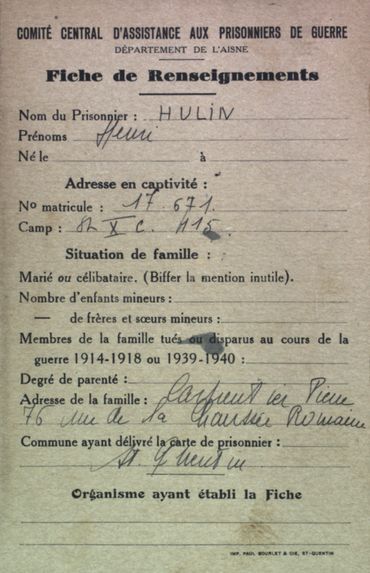 COMITÉ CENTRAL D'ASSISTANCE AUX PRISONNIERS DE GUERRE
DÉPARTEMENT DE L'AISNE
Fiche de Renseignements
Nom du Prisonnier : HULIN
Prénoms Henri
Né le à
Adresse en captivité :
No matricule : 17.671.
Camp : X C.
Situation de famille :
Marié ou célibataire. (Biffer la mention inutile).
Nombre d'enfants mineurs :
— de frères et sœurs mineurs :
Membres de la famille tués ou disparus au cours de la
guerre 1914-1918 ou 1939-1940 :
Degré de parenté :
Adresse de la famille :
76 rue de la Chaussée Romaine
Commune ayant délivré la carte de prisonnier :
St. Quentin
Organisme ayant établi la Fiche
IMP. PAUL BOURLET & CIE, ST-QUENTIN